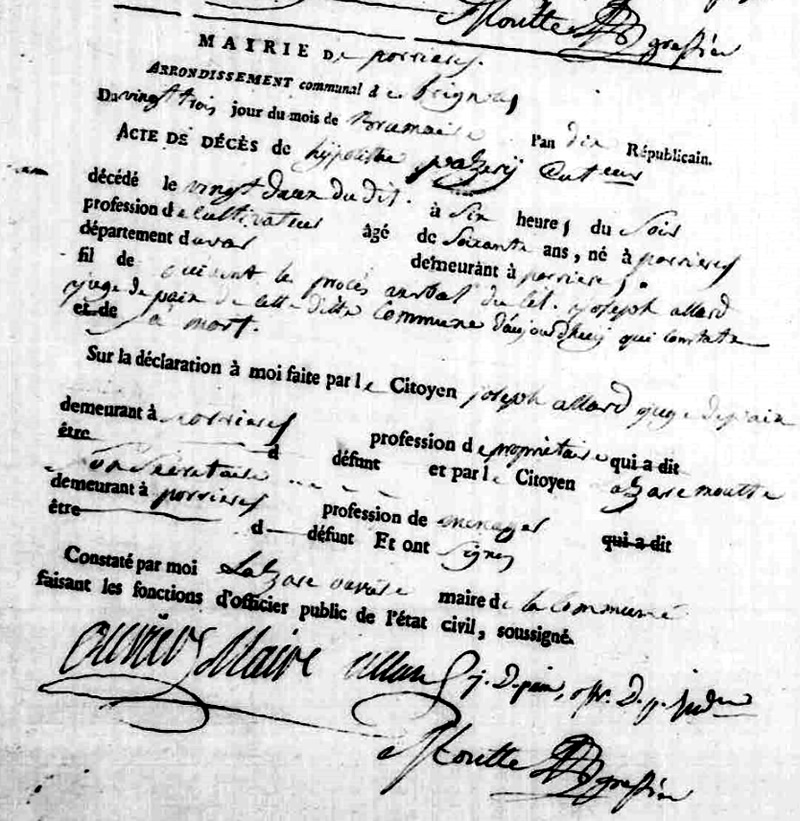 Moutte greffier
MAIRIE DE porrieres.
ARRONDISSEMENT communal de brignoles
Du vingt trois jour du mois de Brumaire l'an dix Républicain.
ACTE DE DÉCÈS de hypolithe
décédé le vingt deux du dit. à Six heures du Soir
profession de Cultivateur âgé de Soixante ans, né à porrieres
département du var demeurant à porrieres,
fil de Suivant le procès verbal du Cit. joseph allard
et de juge de paix de cette ditte Commune d'aujourdhuy qui constate
Sa mort.
Sur la déclaration à moi faite par le Citoyen joseph allard juge de paix
demeurant à porrieres profession de propriétaire qui a dit
être d défunt et par le Citoyen lazare moutte
Son Secretaire
demeurant à porrieres profession de menager qui a dit
être d défunt Et ont Signes
Constaté par moi Lazare maire de la Commune
faisant les fonctions d'officier public de l'état civil, soussigné.
Maire allard j. D. paix, off. D. p. jud.
Moutte greffier